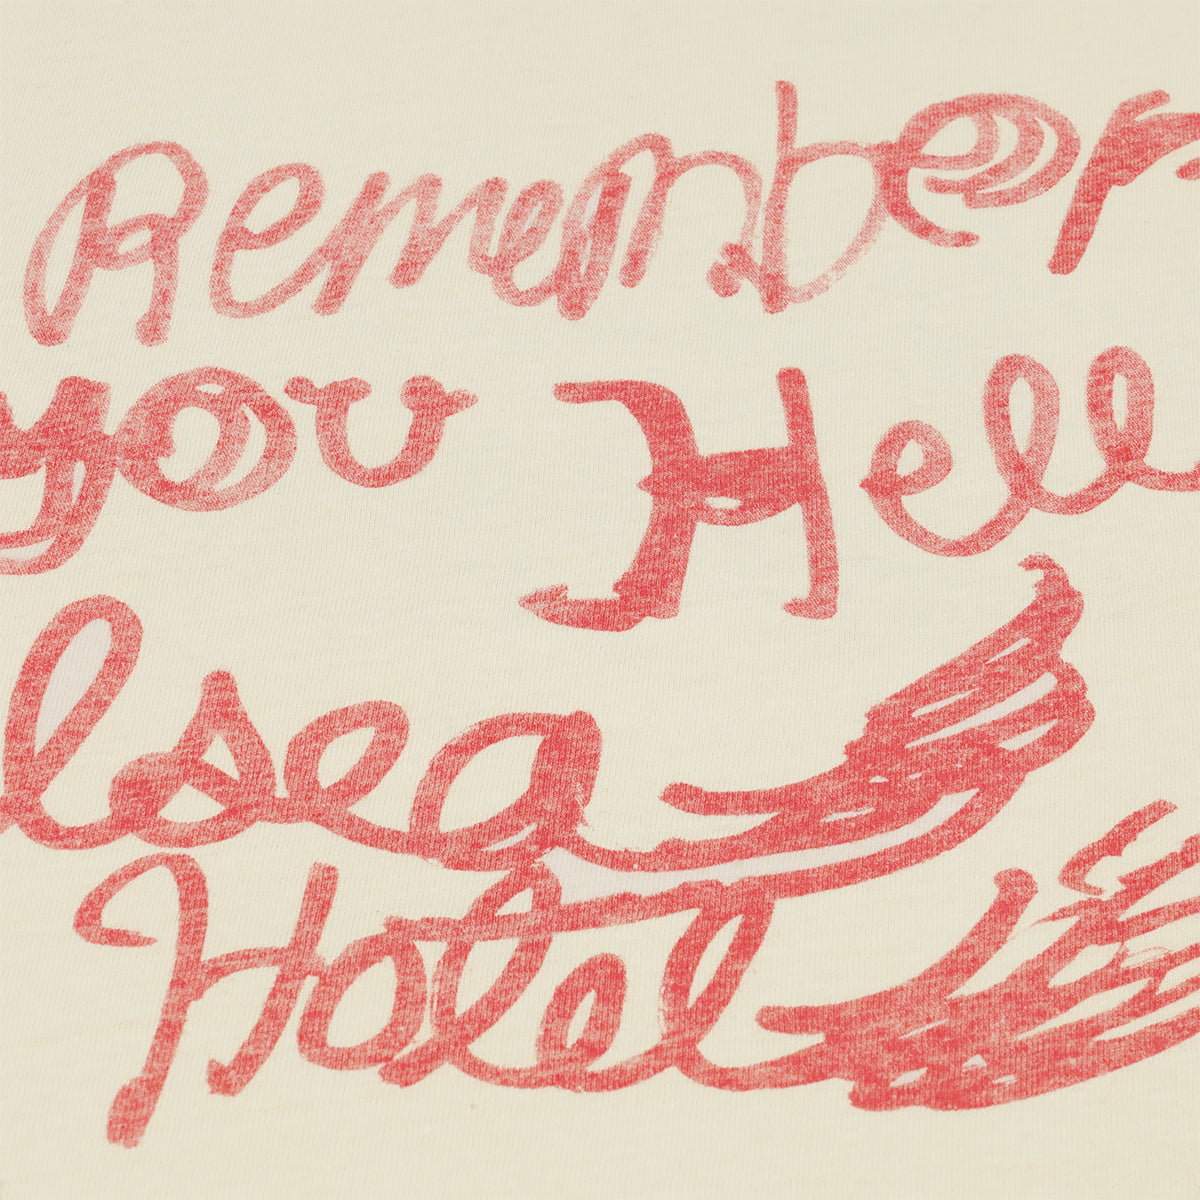 Remember
you Hell
lsea
Hotel